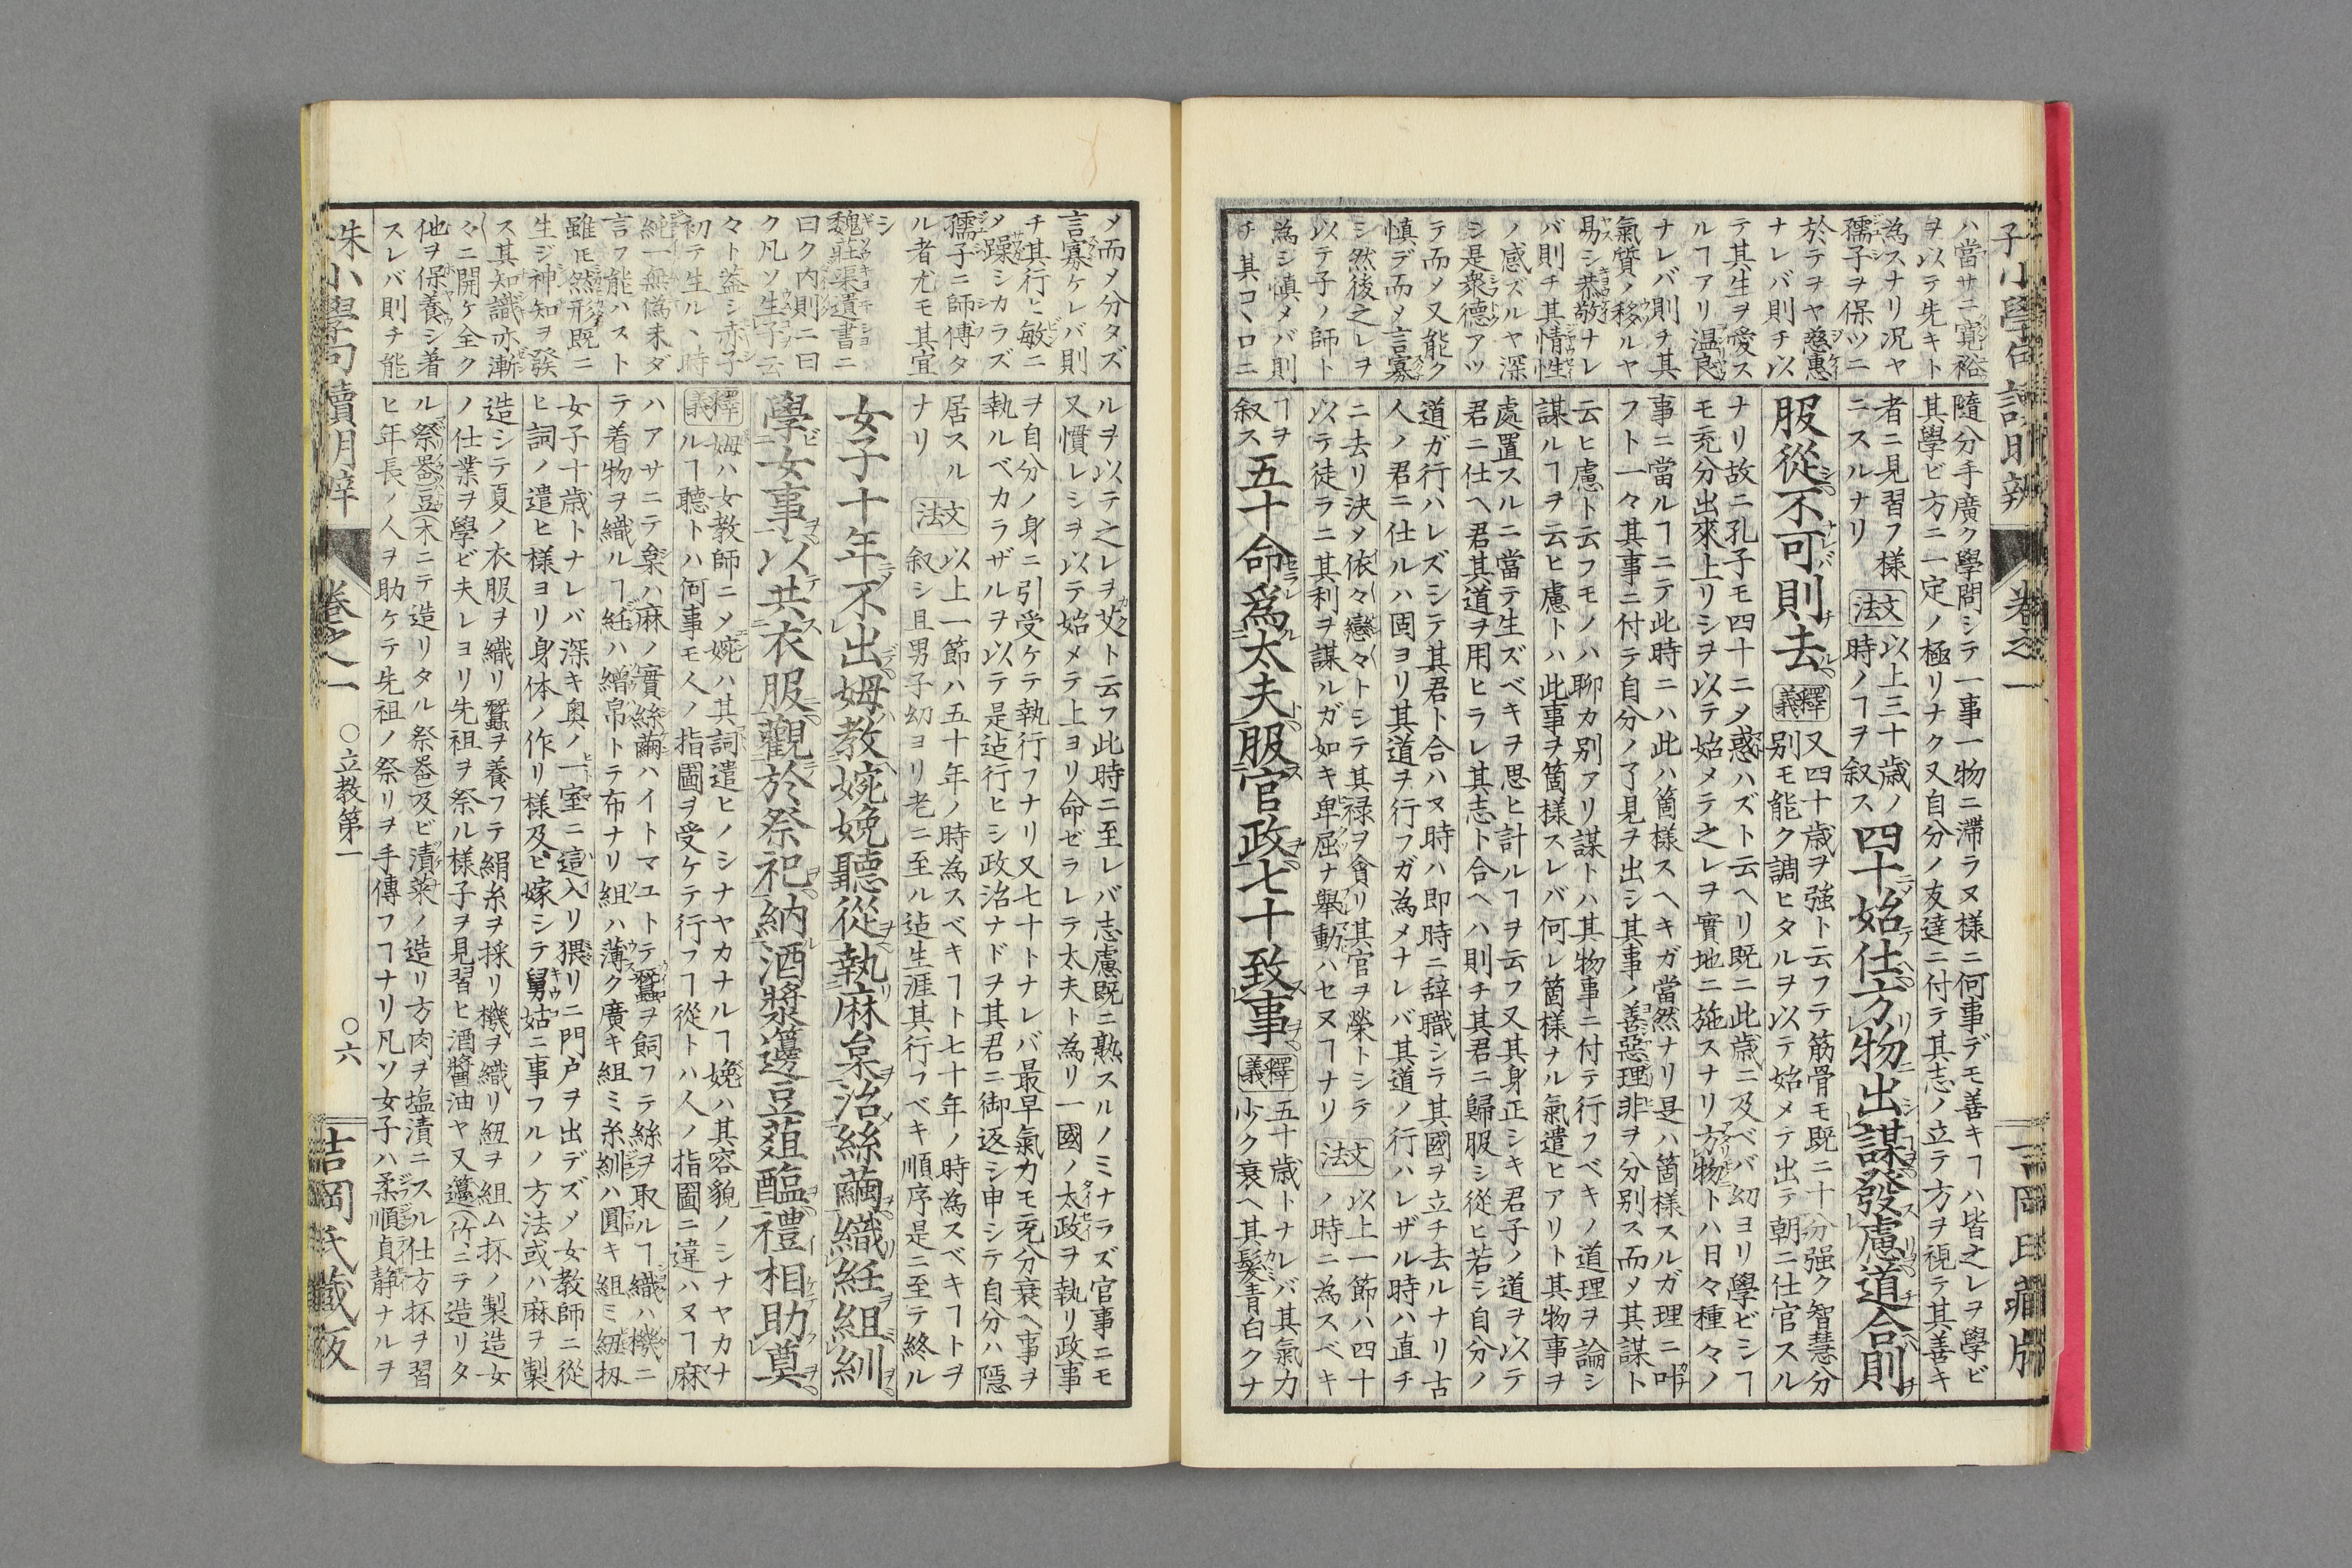 子小學句讀明辨
卷之一
吉岡氏藏版
ハ當サニ寬裕
ヲ以テ先キト
為スナリ况ヤ
孺子ヲ保ツニ
於テヲヤ慈惠
ナレバ則チ以
テ其生ヲ愛ス
ルヿアリ温良
ナレバ則チ其
氣質ノ移ルヤ
易シ恭敬ナレ
バ則チ其情性
ノ感ズルヤ深
シ是衆德アツ
テ而メ又能ク
慎デ而メ言寡
シ然後之レヲ
以テ子ノ師ト
為シ慎メバ則
チ其コヽロニ
隨分手廣ク學問シテ一事一物ニ滯ラヌ樣ニ何事デモ善キヿハ皆之レヲ學ビ
其學ビ方ニ一定ノ極リナク又自分ノ友達ニ付テ其志ノ立テ方ヲ視テ其善キ
者ニ見習フ樣
ニスルナリ
文法
以上三十歲ノ
時ノヿヲ叙ス
四十始仕方物出謀發慮道合則
服從不可則去
釋義
又四十歲ヲ強ト云フテ筋骨モ既ニ十分强ク智慧分
別モ能ク調ヒタルヲ以テ始メテ出テ朝ニ仕官スル
ナリ故ニ孔子モ四十ニメ惑ハズト云ヘリ既ニ此歲ニ及ベバ幼ヨリ學ビシヿ
モ充分出來上リシヲ以テ始メテ之レヲ實地ニ施スナリ方物トハ日々種々ノ
事ニ當ルヿニテ此時ニハ此ハ箇樣スヘキガ當然ナリ是ハ箇樣スルガ理ニ叶
フト一々其事ニ付テ自分ノ了見ヲ出シ其事ノ善惡理非ヲ分别ス而メ其謀ト
云ヒ慮ト云フモノハ聊カ別アリ謀トハ其物事ニ付テ行フベキノ道理ヲ論シ
謀ルヿヲ云ヒ慮トハ此事ヲ箇樣スレバ何レ箇樣ナル氣遣ヒアリト其物事ヲ
處置スルニ當テ生ズベキヲ思ヒ計ルヿヲ云フ又其身正シキ君子ノ道ヲ以テ
君ニ仕ヘ君其道ヲ用ヒラレ其志ト合ヘハ則チ其君ニ歸服シ從ヒ若シ自分ノ
道ガ行ハレズシテ其君ト合ハヌ時ハ即時ニ辞職シテ其國ヲ立チ去ルナリ古
人ノ君ニ仕ルハ固ヨリ其道ヲ行フガ為メナレバ其道ノ行ハレザル時ハ直チ
ニ去リ決メ依々戀々トシテ其禄ヲ貪リ其官ヲ榮トシテ
以テ徒ラニ其利ヲ謀ルガ如キ卑屈ナ舉動ハセヌヿナリ
文法
以上一節ハ四十
ノ時ニ為スベキ
ヿヲ
叙ス
五十命爲大夫服官政七十致事
釋義
五十歲トナレバ其氣力
少ク衰ヘ其髮青白クナ
メ而メ分タズ
言寡ケレバ則
チ其行ヒ敏ニ
メ躁シカラズ
孺子ニ師傅タ
ル者尤モ其宜
シ
魏莊渠遺書ニ
曰ク内則ニ曰
ク凡ソ生子云
々ト蓋シ赤子
初テ生ルヽ時
純一無僞未ダ
言フ能ハスト
雖モ然形既ニ
生ジ神知ヲ發
ス其知識亦漸
々ニ開ケ全ク
他ヲ保養シ着
スレバ則チ能
ルヲ以テ之レヲ艾ト云フ此時ニ至レバ志慮既ニ熟スルノミナラズ官事ニモ
又慣レシヲ以テ始メテ上ヨリ命ゼラレテ太夫ト為リ一國ノ太政ヲ執リ政事
ヲ自分ノ身ニ引受ケテ執行フナリ又七十トナレバ最早氣力モ充分衰ヘ事ヲ
執ルベカラザルヲ以テ是迠行ヒシ政治ナドヲ其君ニ御返シ申シテ自分ハ隱
居スル
ナリ
文法
以上一節ハ五十年ノ時為スベキヿト七十年ノ時為スベキヿトヲ
叙シ且男子幼ヨリ老ニ至ル迠生涯其行フベキ順序是ニ至テ終ル
女子十年不出姆教婉娩聽從執麻枲治絲繭織紝組紃
學女事以共衣服觀於祭祀納酒漿籩豆葅醢禮相助奠
釋義
姆ハ女教師ニメ婉ハ其詞遣ヒノシナヤカナルヿ娩ハ其容貌ノシナヤカナ
ルヿ聽トハ何事モ人ノ指圖ヲ受ケテ行フヿ從トハ人ノ指圖ニ違ハヌヿ麻
ハアサニテ枲ハ麻ノ實絲繭ハイトマユトテ蠶ヲ飼フテ絲ヲ取ルヿ織ハ機ニ
テ着物ヲ織ルヿ紝ハ繒帛トテ布ナリ組ハ薄ク廣キ組ミ糸紃ハ圓キ組ミ紐扨
女子十歲トナレバ深キ奥ノ一室ニ這入リ猥リニ門户ヲ出デズメ女教師ニ從
ヒ詞ノ遣ヒ樣ヨリ身体ノ作リ樣及ビ嫁シテ舅姑ニ事フルノ方法或ハ麻ヲ製
造シテ夏ノ衣服ヲ織リ蠶ヲ養フテ絹糸ヲ採リ機ヲ織リ紐ヲ組ム抔ノ製造女
ノ仕業ヲ學ビ夫レヨリ先祖ヲ祭ル樣子ヲ見習ヒ酒醬油ヤ又籩(竹ニテ造リタ
ル祭器)豆(木ニテ造リタル祭器)及ビ漬菜ノ造リ方肉ヲ塩漬ニスル仕方抔ヲ習
ヒ年長ノ人ヲ助ケテ先祖ノ祭リヲ手傳フヿナリ凡ソ女子ハ柔順貞静ナルヲ
朱小學句讀明辨
卷之一
○立教第一
○六
吉岡氏藏版